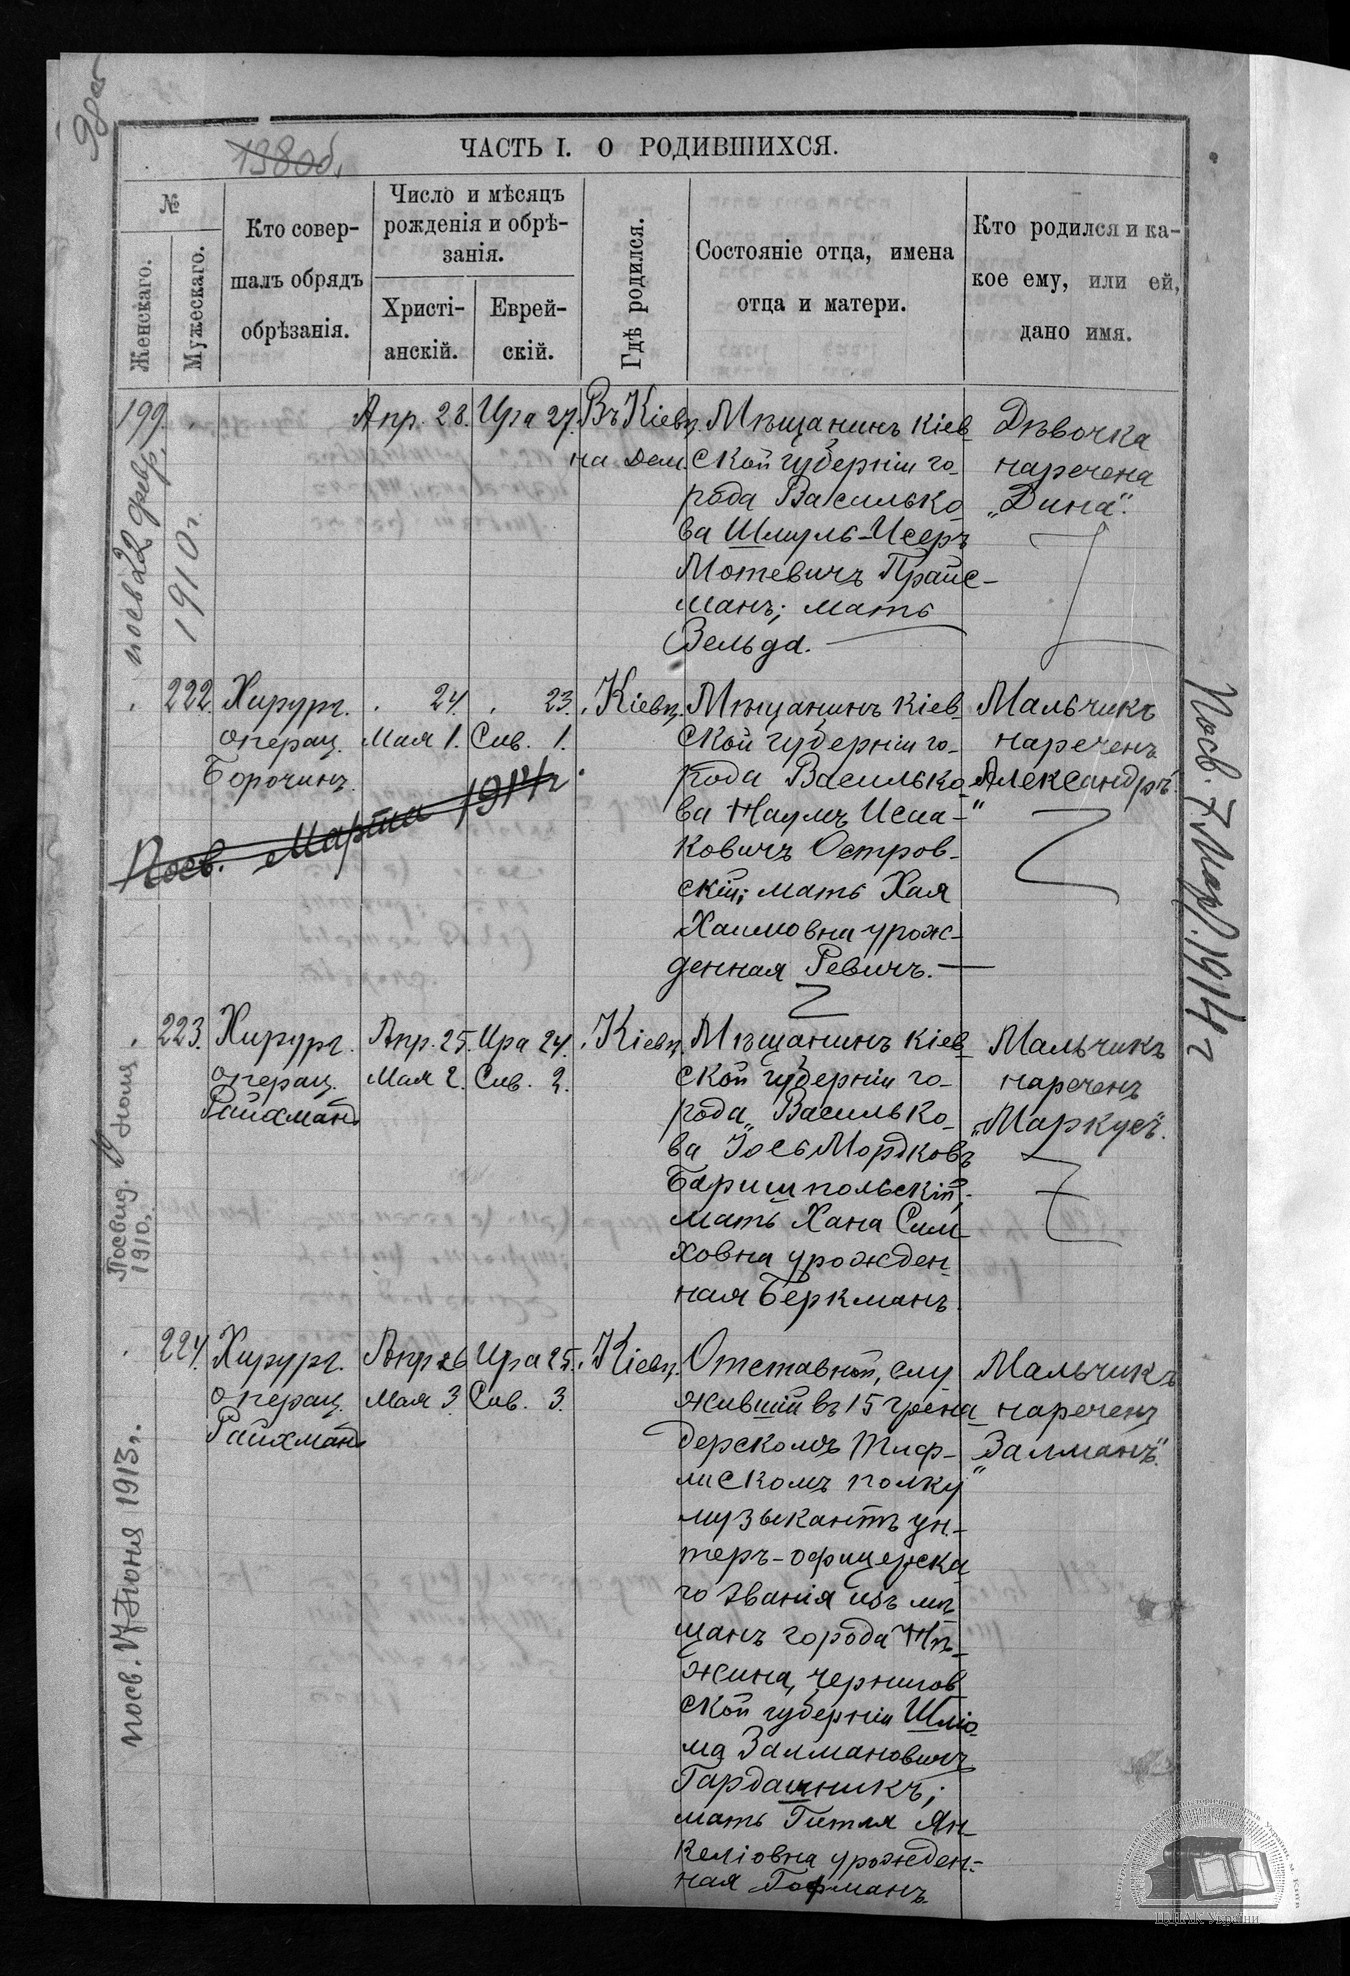 98об
138об.
ЧАСТЬ I. О РОДИВШИХСЯ.
№
Женскаго.
Мужескаго.
Кто совер-
шалъ обрядъ
обрѣзанія.
Число и мѣсяцъ
рожденія и обрѣ-
занія.
Христі-
анскій.
Еврей-
скій.
Гдѣ родился.
Состояніе отца, имена
отца и матери.
Кто родился и ка-
кое ему, или ей,
дано имя.
199.
Апр. 28.
Ира 27.
Въ Кіевѣ
на Дем.
Мѣщанинъ Кіев-
ской губерніи го-
рода Василько-
ва Шмуль-Исеръ
Мотевичъ Прайс-
манъ; мать
Зельда.
Дѣвочка
наречена
„Дина“.
посв 22 февр.
1910 г.
222.
Хирург.
операц.
Борочинъ.
24.
Мая 1.
23.
Сив. 1.
Кіевѣ.
Мѣщанинъ Кіев-
ской губерніи го-
рода Василько-
ва Наумъ Исаа-
ковичъ Остров-
скій; мать Хая
Хаимовна урож-
денная Ревичъ.
Мальчикъ
нареченъ
„Александръ“
Посв. Марта 1914 г.
Посв. 7 Мар. 1914 г
223.
Хирург.
операц.
Райхман.
Апр. 25.
Мая 2.
Ира 24.
Сив. 2.
Кіевѣ.
Мѣщанинъ Кіев-
ской губерніи го-
рода Василько-
ва Іось Мордковъ
Баришпольскій;
мать Хана Сим-
ховна урожден-
ная Беркманъ.
Мальчикъ
нареченъ
„Маркусъ“.
Посвид. Іюня
1910 г.
224.
Хирург.
операц.
Райхман.
Апр 26
Мая 3.
Ира 25.
Сив. 3.
Кіевѣ.
Отставной, слу
жившій въ 15 грена
дерскомъ Тиф-
лисскомъ полку
музыкантъ ун-
теръ-офицерска
го званія изъ мѣ
щанъ города Нѣ-
жина, чернигов
ской губерніи Шліо-
ма Залмановичъ
Гардашникъ;
мать Гитля Ян-
келіовна урожден-
ная Гофманъ.
Мальчикъ
нареченъ
„Залманъ“.
посв. 17 Іюня 1913 г.
ЦДІАК України